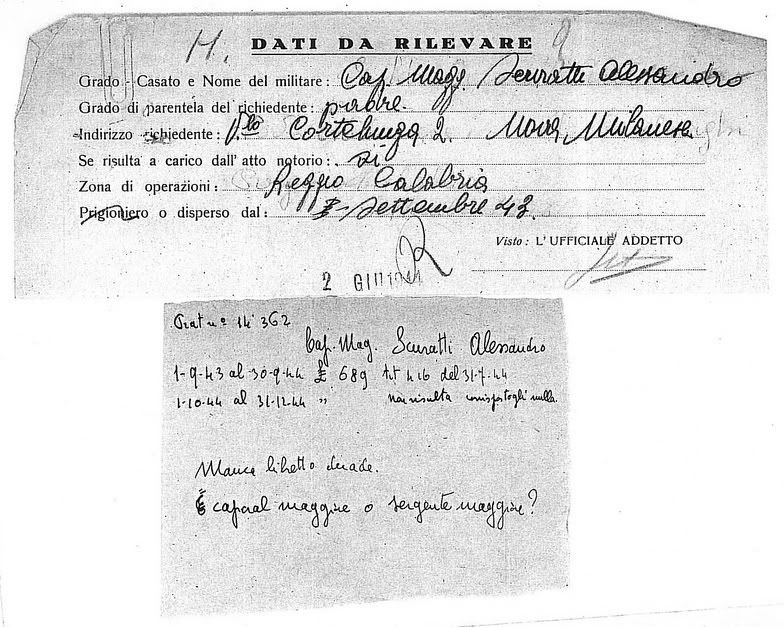 H.
DATI DA RILEVARE
Grado - Casato e Nome del militare: Cap. Magg. Scuratti Alessandro
Grado di parentela del richiedente: padre.
Indirizzo richiedente: V.lo Cortelunga 2. Nova Milanese
Se risulta a carico dall' atto notorio: si
Zona di operazioni: Reggio Calabria
Prigioniero o disperso dal: Settembre 43.
Visto: L'UFFICIALE ADDETTO
2 GIU 1944
Prat n° 14362
Cap. Mag. Scuratti Alessandro
1-9-43 al 30-9-44 £ 689 tit 416 del 31-7-44
1-10-44 al 31-12-44 " non risulta corrispostogli nulla.
Manca libretto decade.
È caporal maggiore o sergente maggiore?